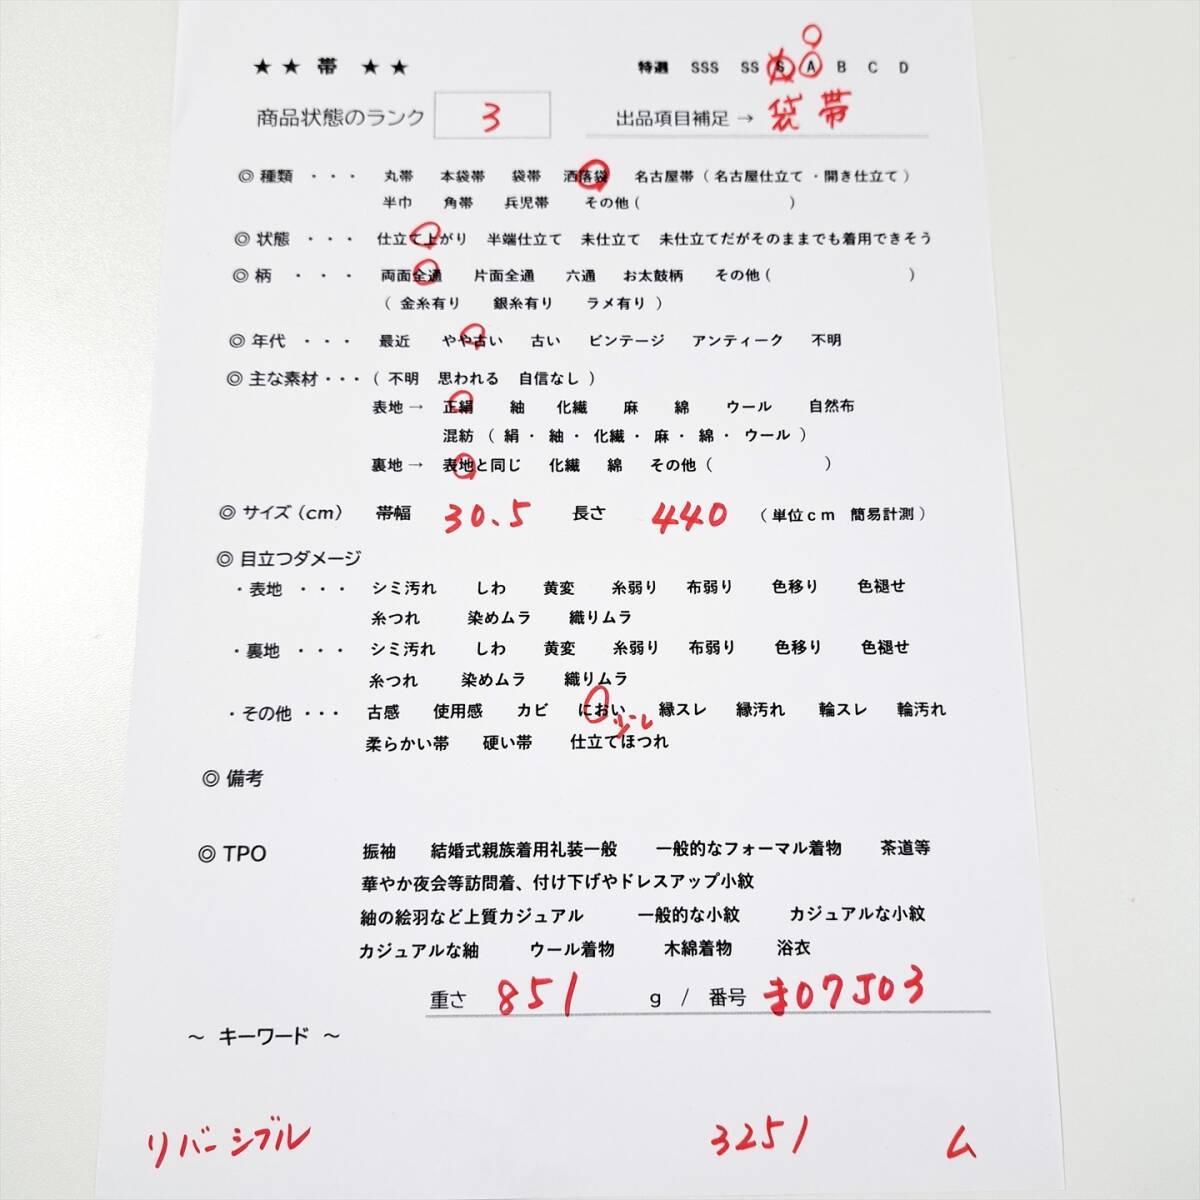 ★ ★ 帯 ★ ★ 特選 SSS SS S A B C D
商品状態のランク 3 出品項目補足 → 袋帯
◎ 種類 ・・・ 丸帯 本袋帯 袋帯 洒落袋 名古屋帯 ( 名古屋仕立て ・開き仕立て )
半巾 角帯 兵児帯 その他 ( )
◎ 状態 ・・・ 仕立て上がり 半端仕立て 未仕立て 未仕立てだがそのままでも着用できそう
◎ 柄 ・・・ 両面全通 片面全通 六通 お太鼓柄 その他 ( )
( 金糸有り 銀糸有り ラメ有り )
◎ 年代 ・・・ 最近 やや古い 古い ビンテージ アンティーク 不明
◎ 主な素材・・・ ( 不明 思われる 自信なし )
表地 → 正絹 紬 化繊 麻 綿 ウール 自然布
混紡 ( 絹・ 紬・ 化繊・ 麻・ 綿・ ウール )
裏地 → 表地と同じ 化繊 綿 その他 ( )
◎ サイズ (cm) 帯幅 30.5 長さ 440 ( 単位cm 簡易計測 )
◎ 目立つダメージ
・表地 ・・・ シミ汚れ しわ 黄変 糸弱り 布弱り 色移り 色褪せ
糸つれ 染めムラ 織りムラ
・裏地 ・・・ シミ汚れ しわ 黄変 糸弱り 布弱り 色移り 色褪せ
糸つれ 染めムラ 織りムラ
・その他 ・・・ 古感 使用感 カビ におい 縁スレ 縁汚れ 輪スレ 輪汚れ
柔らかい帯 硬い帯 仕立てほつれ
◎ 備考
◎ TPO 振袖 結婚式親族着用礼装一般 一般的なフォーマル着物 茶道等
華やか夜会等訪問着、付け下げやドレスアップ小紋
紬の絵羽など上質カジュアル 一般的な小紋 カジュアルな小紋
カジュアルな紬 ウール着物 木綿着物 浴衣
重さ 851 g / 番号 ま07J03
～ キーワード ～
リバーシブル 3251 ム